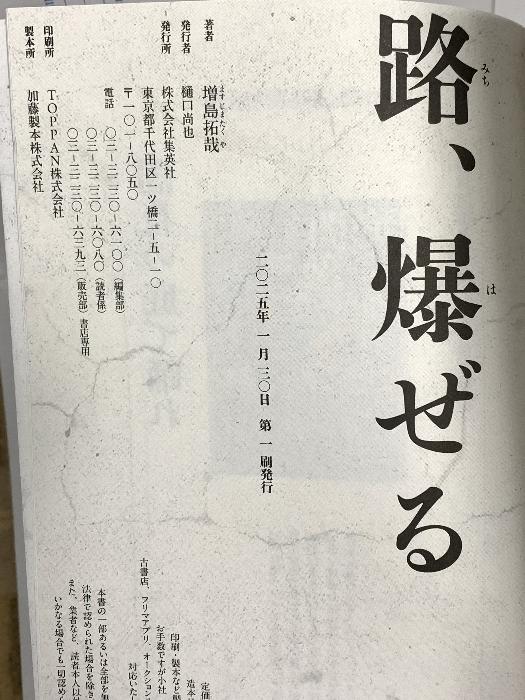 路、爆ぜる
みち
は
二〇二五年一月三〇日 第一刷発行
著者 増島拓哉
ますじまたくや
発行者 樋口尚也
発行所 株式会社集英社
東京都千代田区一ツ橋二-五-一〇
〒一〇一-八〇五〇
電話 〇三-三二三〇-六一〇〇(編集部)
〇三-三二三〇-六〇八〇(読者係)
〇三-三二三〇-六三九三(販売部)書店専用
印刷所 TOPPAN株式会社
製本所 加藤製本株式会社
定価
造本
印刷・製本など製
お手数ですが小社
古書店、フリマアプリ、オークション
対応いた
本書の一部あるいは全部を無
法律で認められた場合を除き
また、業者など、読者本人以
いかなる場合でも一切認め